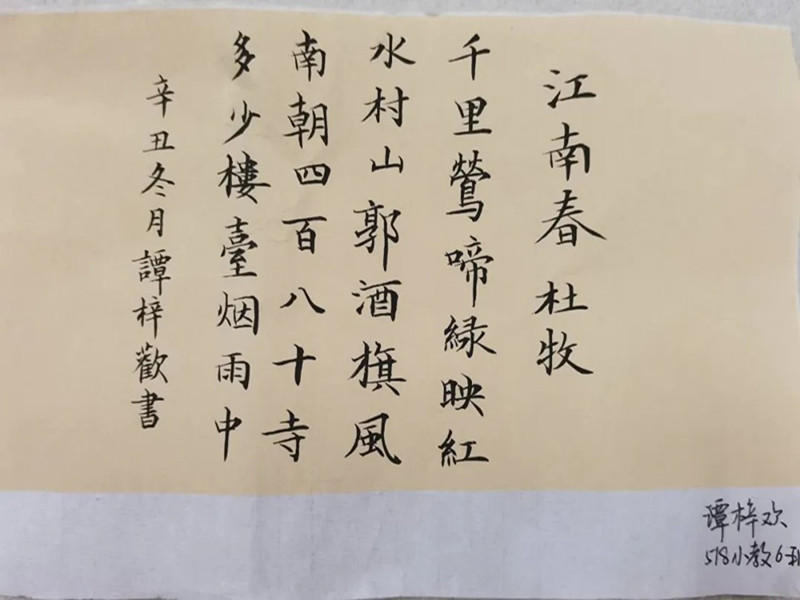 江南春 杜牧
千里鶯啼緑映紅
水村山郭酒旗風
南朝四百八十寺
多少樓臺烟雨中
辛丑冬月譚梓歡書
谭梓欢
578小教6班